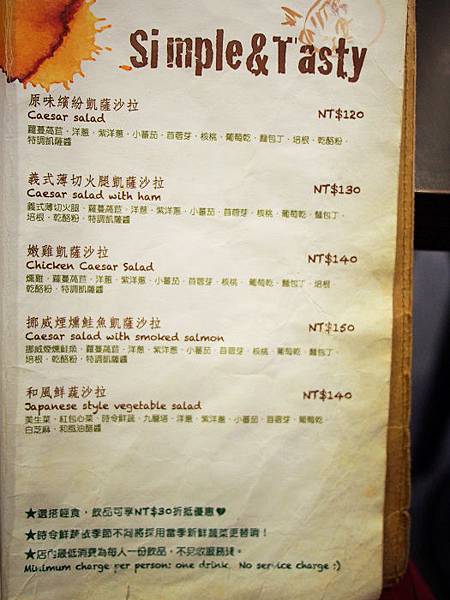 Simple&Tasty
原味繽紛凱薩沙拉 NT$120
Caesar salad
蘿蔓萵苣、洋蔥、紫洋蔥、小蕃茄、苜蓿芽、核桃、葡萄乾、麵包丁、培根、乾酪粉、
特調凱薩醬
義式薄切火腿凱薩沙拉 NT$130
Caesar salad with ham
義式薄切火腿、蘿蔓萵苣、洋蔥、紫洋蔥、小蕃茄、苜蓿芽、核桃、葡萄乾、麵包丁、
培根、乾酪粉、特調凱薩醬
嫩雞凱薩沙拉 NT$140
Chicken Caesar Salad
燻雞、蘿蔓萵苣、洋蔥、紫洋蔥、小蕃茄、苜蓿芽、核桃、葡萄乾、麵包丁、培根、
乾酪粉、特調凱薩醬
挪威煙燻鮭魚凱薩沙拉 NT$150
Caesar salad with smoked salmon
挪威煙燻鮭魚、蘿蔓萵苣、洋蔥、紫洋蔥、小蕃茄、苜蓿芽、核桃、葡萄乾、麵包丁、
培根、乾酪粉、特調凱薩醬
和風鮮蔬沙拉 NT$140
Japanese style vegetable salad
美生菜、紅包心菜、時令鮮蔬、九層塔、洋蔥、紫洋蔥、小蕃茄、苜蓿芽、葡萄乾、
白芝麻、和風油醋醬
★選搭輕食，飲品可享NT$30折抵優惠♥
★時令鮮蔬依季節不同將採用當季新鮮蔬菜更替唷！
★店內最低消費為每人一份飲品，不另收服務費。
Minimum charge per person: one drink. No service charge :)